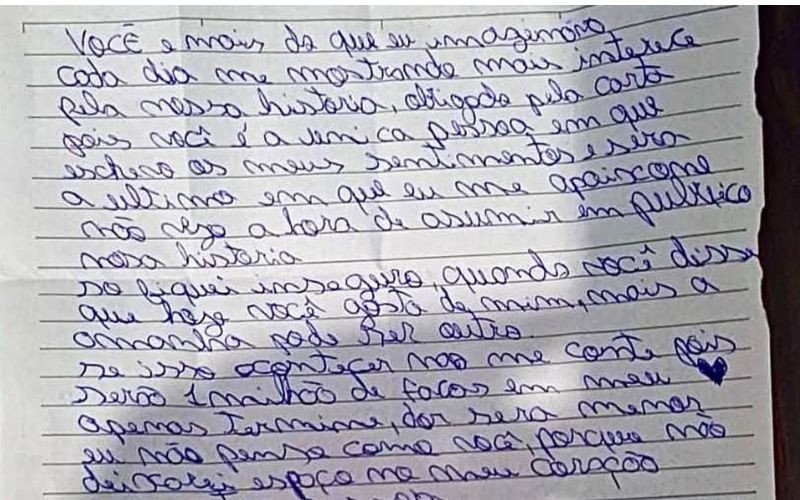 VOCÊ e mais do que eu imaginava,
cada dia me mostrando mais interece
pela nossa historia, obligada pela carta
pois você é a unica pessoa em que
escrevo os meus sentimentos e sera
a ultima em que eu me apaixone
não vejo a hora de asumir em publico
nosa historia
so fiquei inseguro, quando você disse
que hoje você gosta de mim, mais a
amanha pode ser outro
se isso acontecer não me conte pois
serão 1 milhão de facas em meu ♥
apenas termine, dor sera menor
eu não penso como você, porque não
deixarei espaço no meu coração